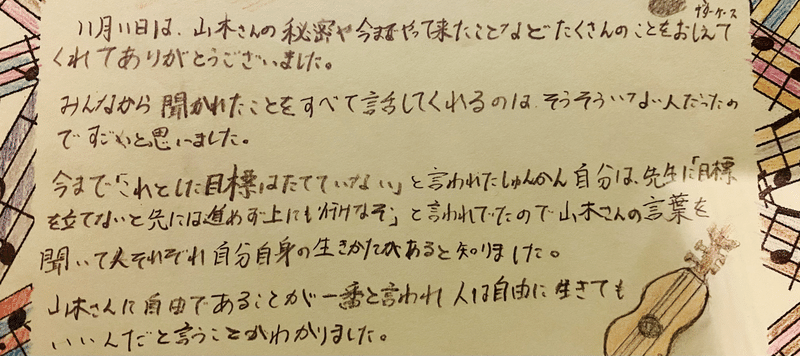 ギターケース
11月11日は、山木さんの秘密や今までやって来たことなどたくさんのことをおしえて
くれてありがとうございました。
みんなから聞かれたことをすべて話してくれるのは、そうそういない人だったの
ですごいと思いました。
今まで「これとした目標はたてていない」と言われたしゅんかん自分は、先生に「目標
を立てないと先には進めず上にも行けなぞ」と言われてたので山木さんの言葉を
聞いて人それぞれ自分自身の生きかたがあると知りました。
山木さんに自由であることが一番と言われ人は自由に生きても
いいんだと言うことがわかりました。